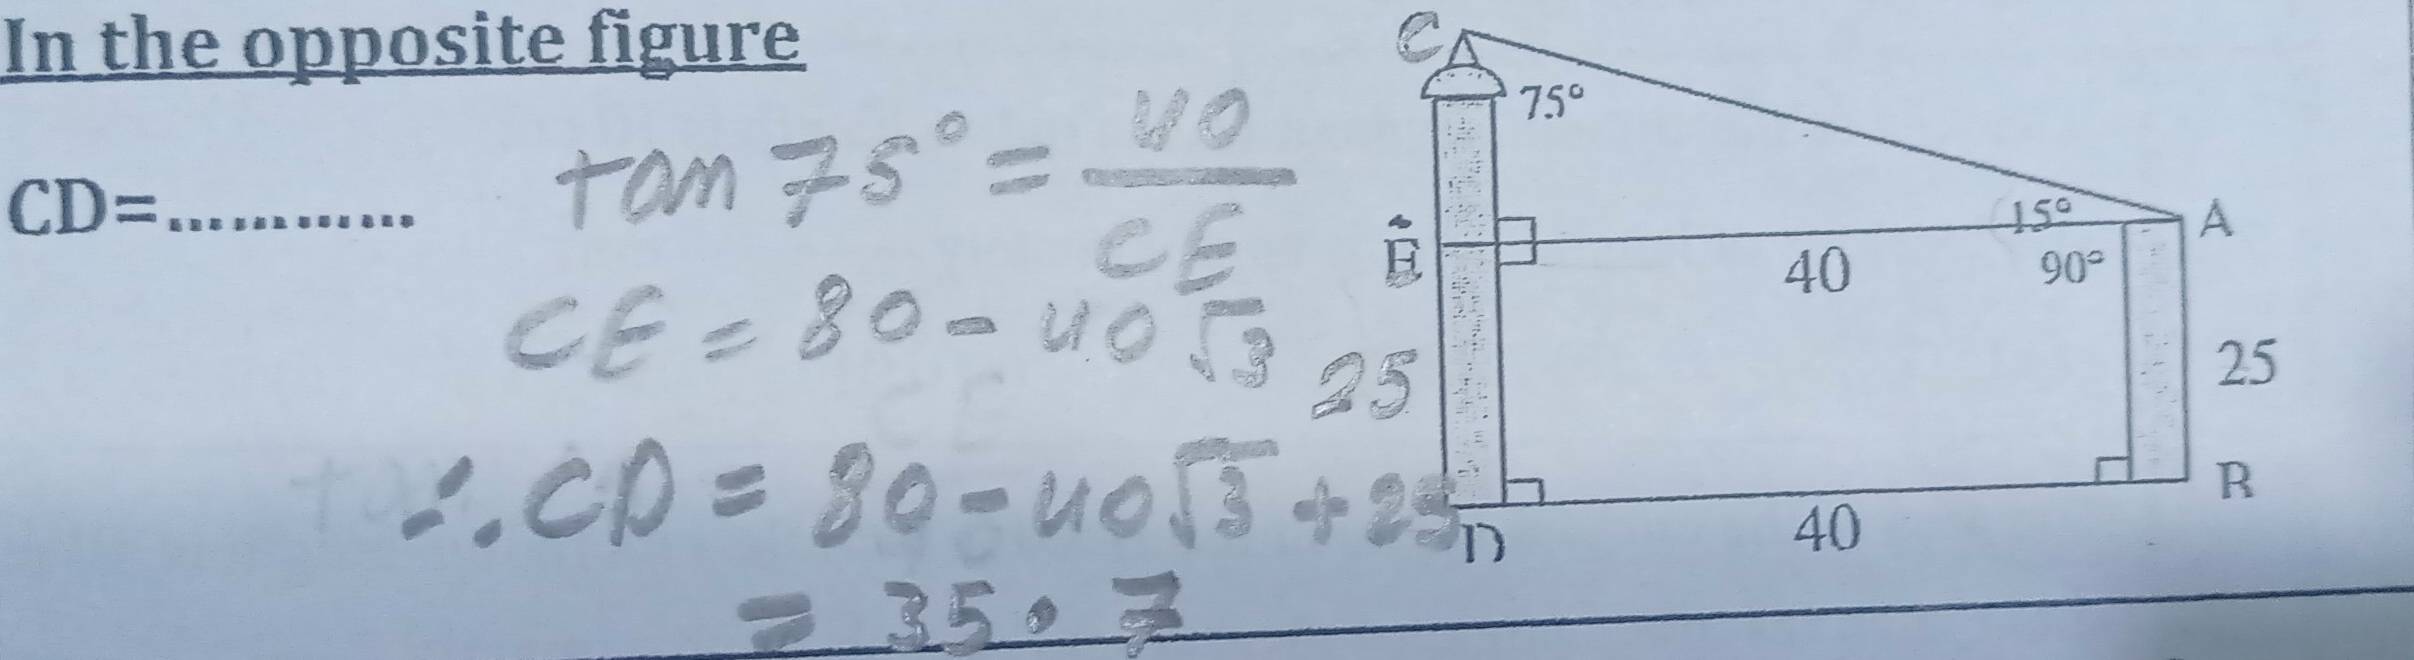 In the opposite figure
CD=............
tan 75° = 40/CE
CE = 80 - 40√3
∴ CD = 80 - 40√3 + 25
= 35.7
C
75°
15°
A
E
40
90°
25
25
D
40
B